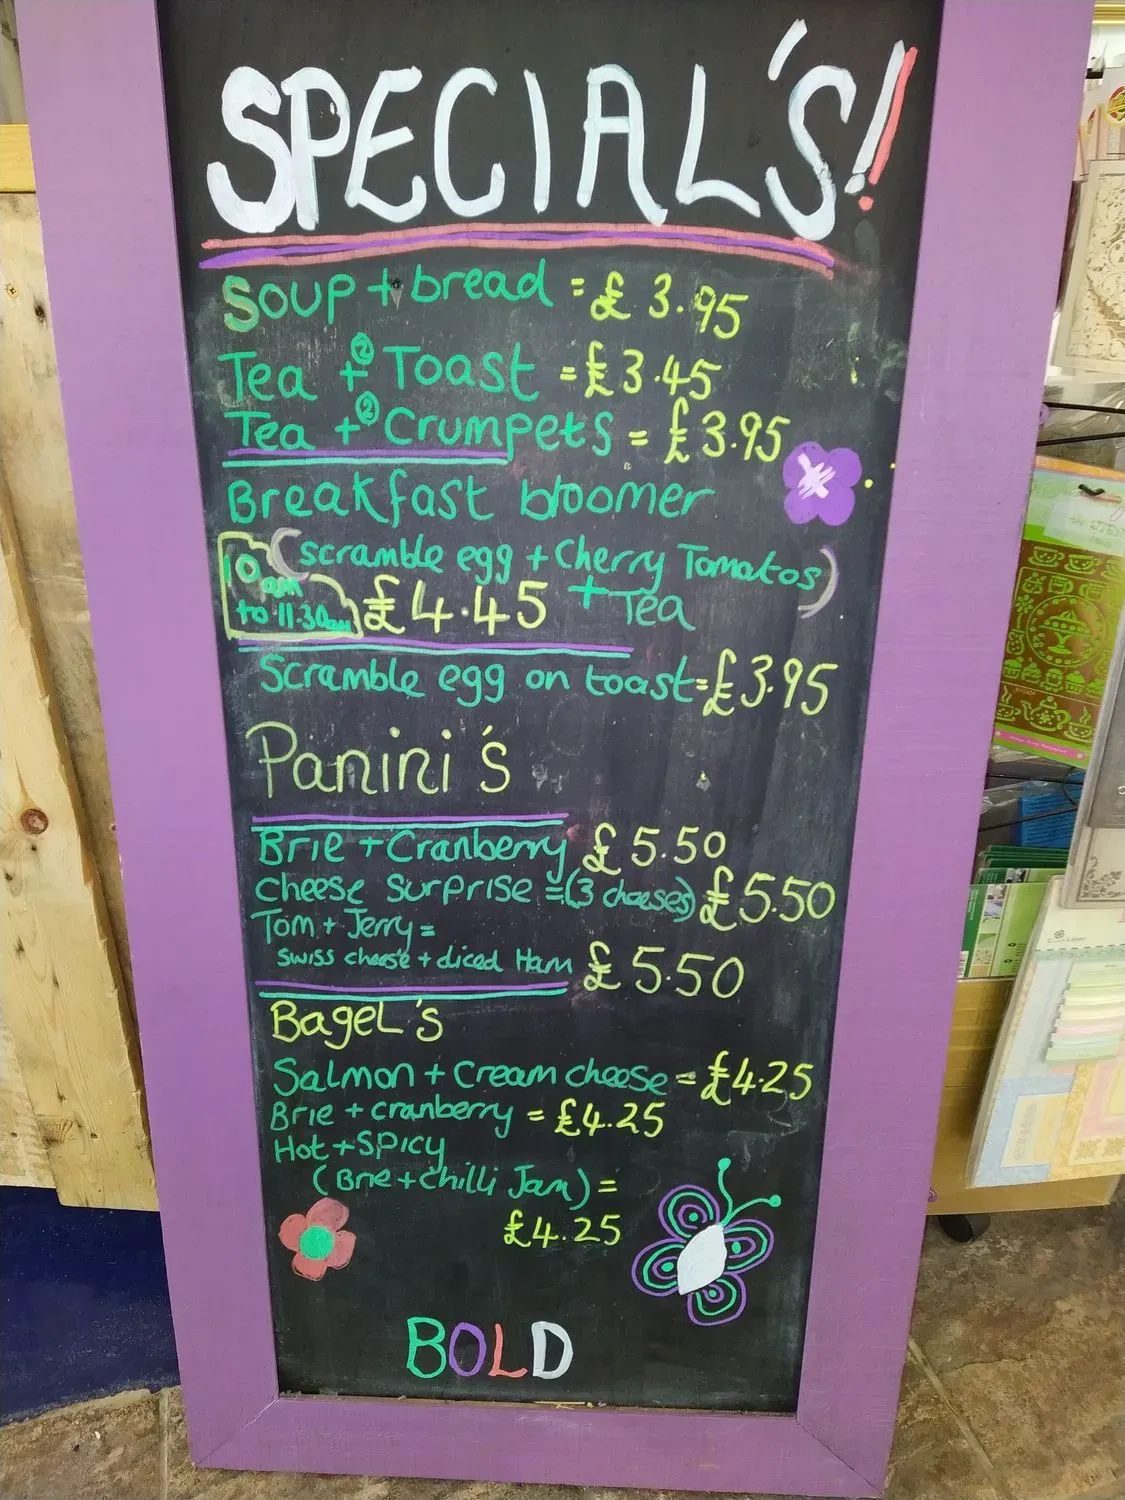 SPECIAL'S!!
Soup + bread = £3.95
Tea + ② Toast = £3.45
Tea + ② Crumpets = £3.95
Breakfast bloomer
(scramble egg + Cherry Tomatos)
10am
to 11.30am
£4.45 + Tea
Scramble egg on toast = £3.95
Panini's
Brie + Cranberry £5.50
Cheese Surprise = (3 cheeses) £5.50
Tom + Jerry =
Swiss cheese + diced Ham £5.50
Bagel's
Salmon + Cream cheese = £4.25
Brie + cranberry = £4.25
Hot + Spicy
(Brie + chilli Jam) =
£4.25
BOLD